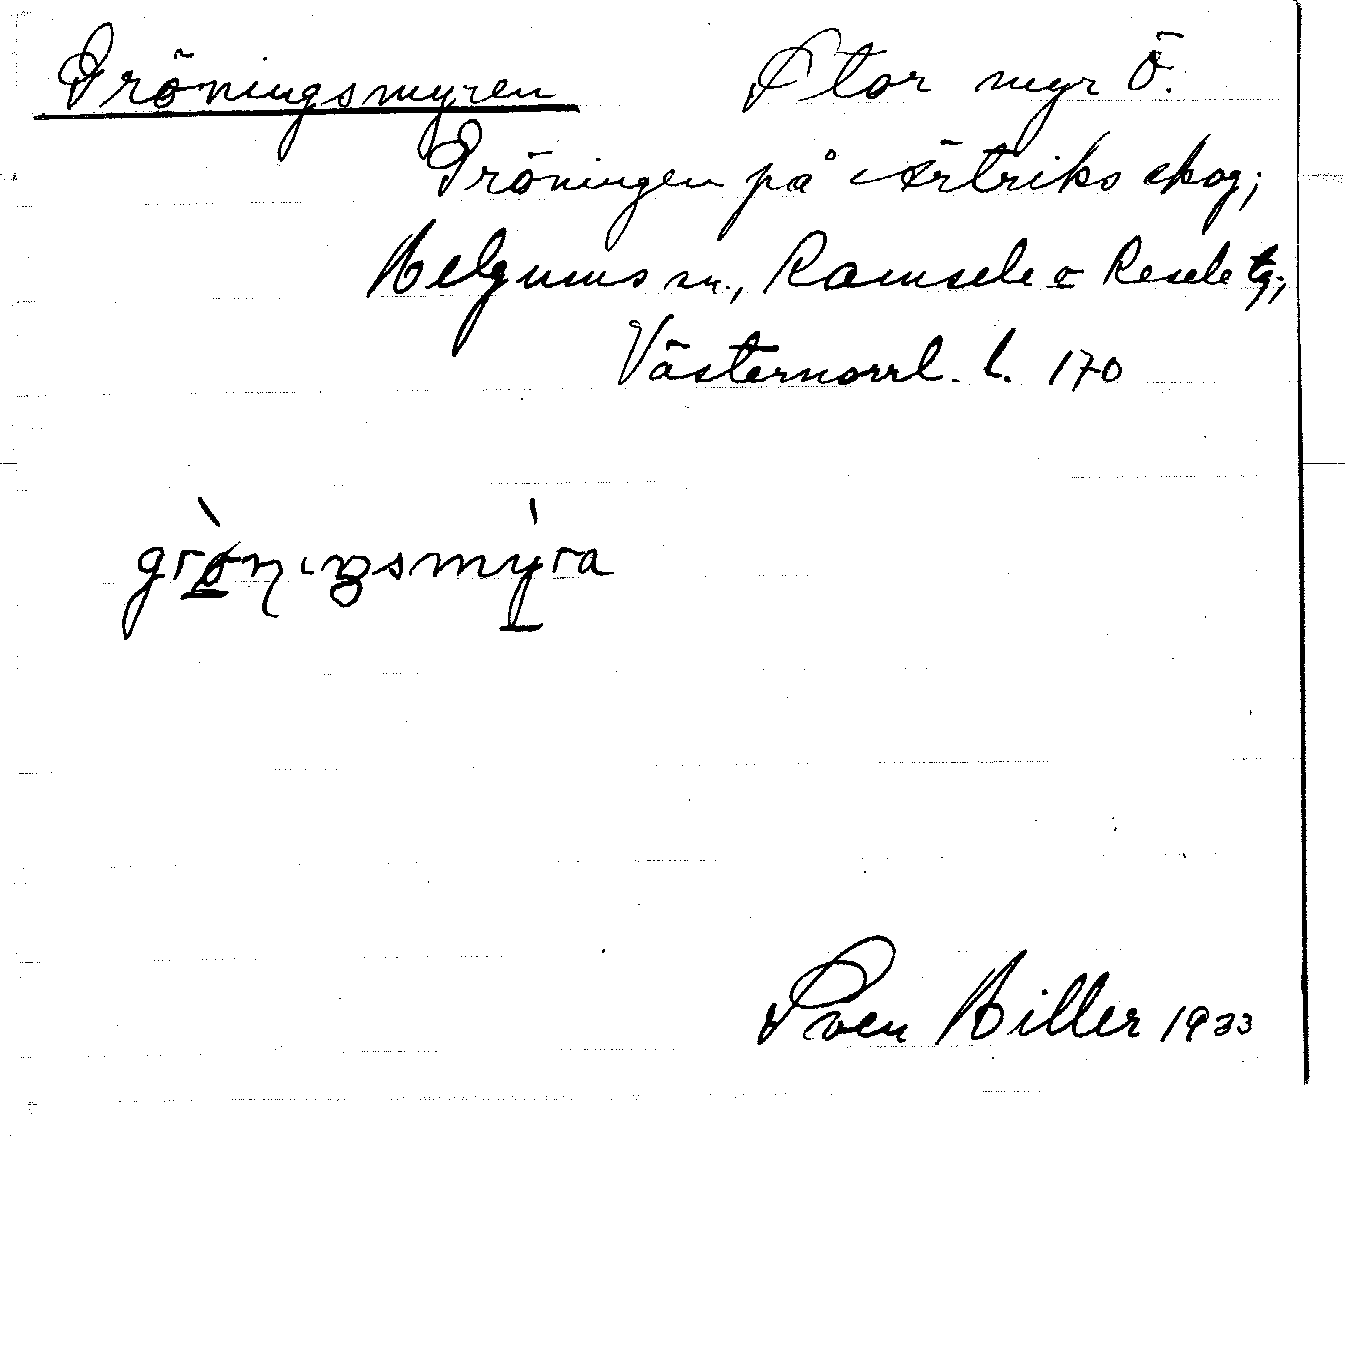 Gröningsmyren Stor myr Ö.
Gröningen på Ärtriks skog;
Helgums sn., Ramsele o Resele tg;
Västernorrl. l. 170
grø̀nıŋsmỳra
Sven Hiller 1933